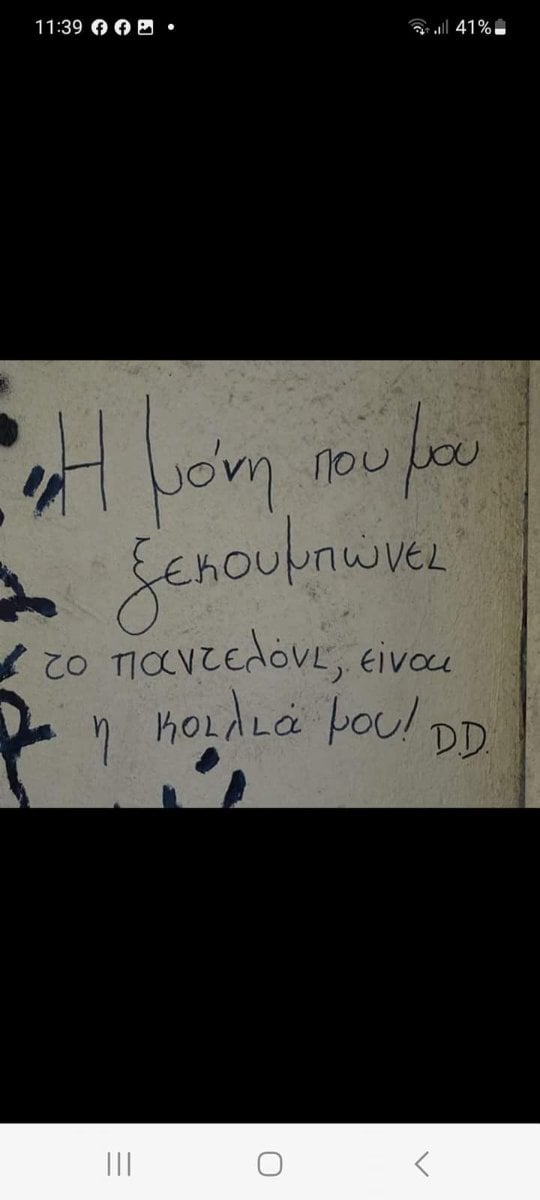 11:39 41%
"Η μόνη που μου
ξεκουμπώνει
το παντελόνι, είναι
η κοιλιά μου! D.D.